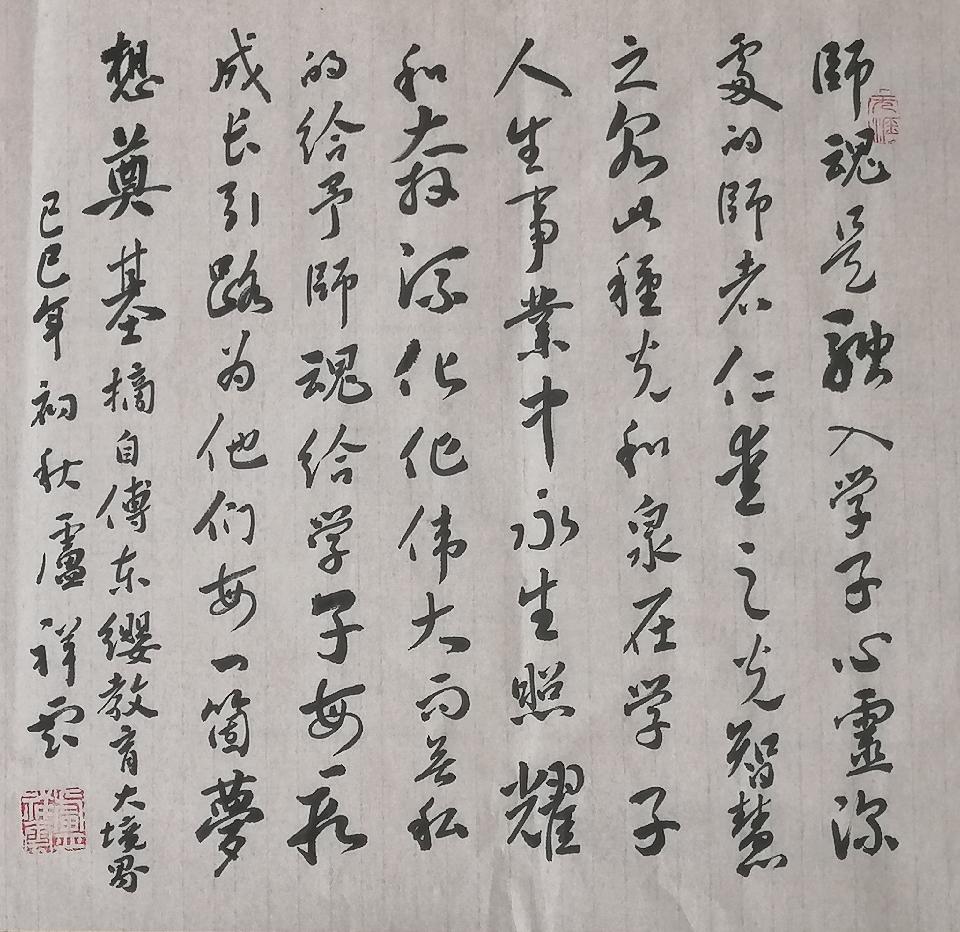 師魂是融入学子心靈深
處的師者仁愛之光智慧
之泉此種光和泉在学子
人生事業中永生照耀
和大深化伟大而无私
的给予師魂给学子每
成长引路为他们每一箇夢
想奠基摘自傅东缨教育大境界
己巳年初秋盧祥云